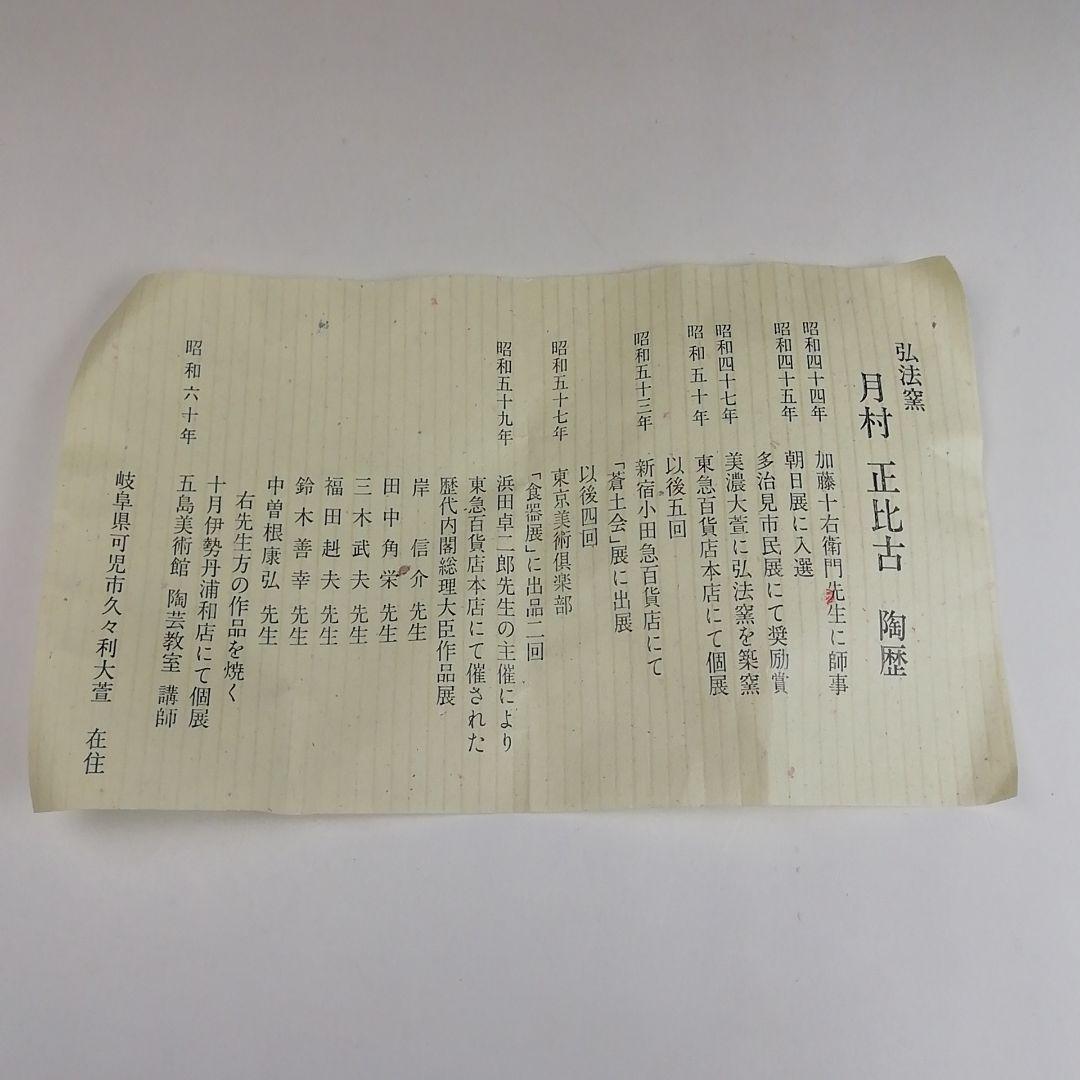 弘法窯
月村 正比古 陶歴
昭和四十四年 加藤十右衛門先生に師事
昭和四十五年 朝日展に入選
多治見市民展にて奨励賞
昭和四十七年 美濃大萱に弘法窯を築窯
昭和五十年 東急百貨店本店にて個展
以後五回
昭和五十三年 新宿小田急百貨店にて
「蒼土会」展に出展
以後四回
昭和五十七年 東京美術倶楽部
「食器展」に出品二回
昭和五十九年 浜田卓二郎先生の主催により
東急百貨店本店にて催された
歴代内閣総理大臣作品展
岸 信介 先生
田中角栄 先生
三木武夫 先生
福田赳夫 先生
鈴木善幸 先生
中曽根康弘 先生
右先生方の作品を焼く
昭和六十年 十月伊勢丹浦和店にて個展
五島美術館 陶芸教室 講師
岐阜県可児市久々利大萱 在住